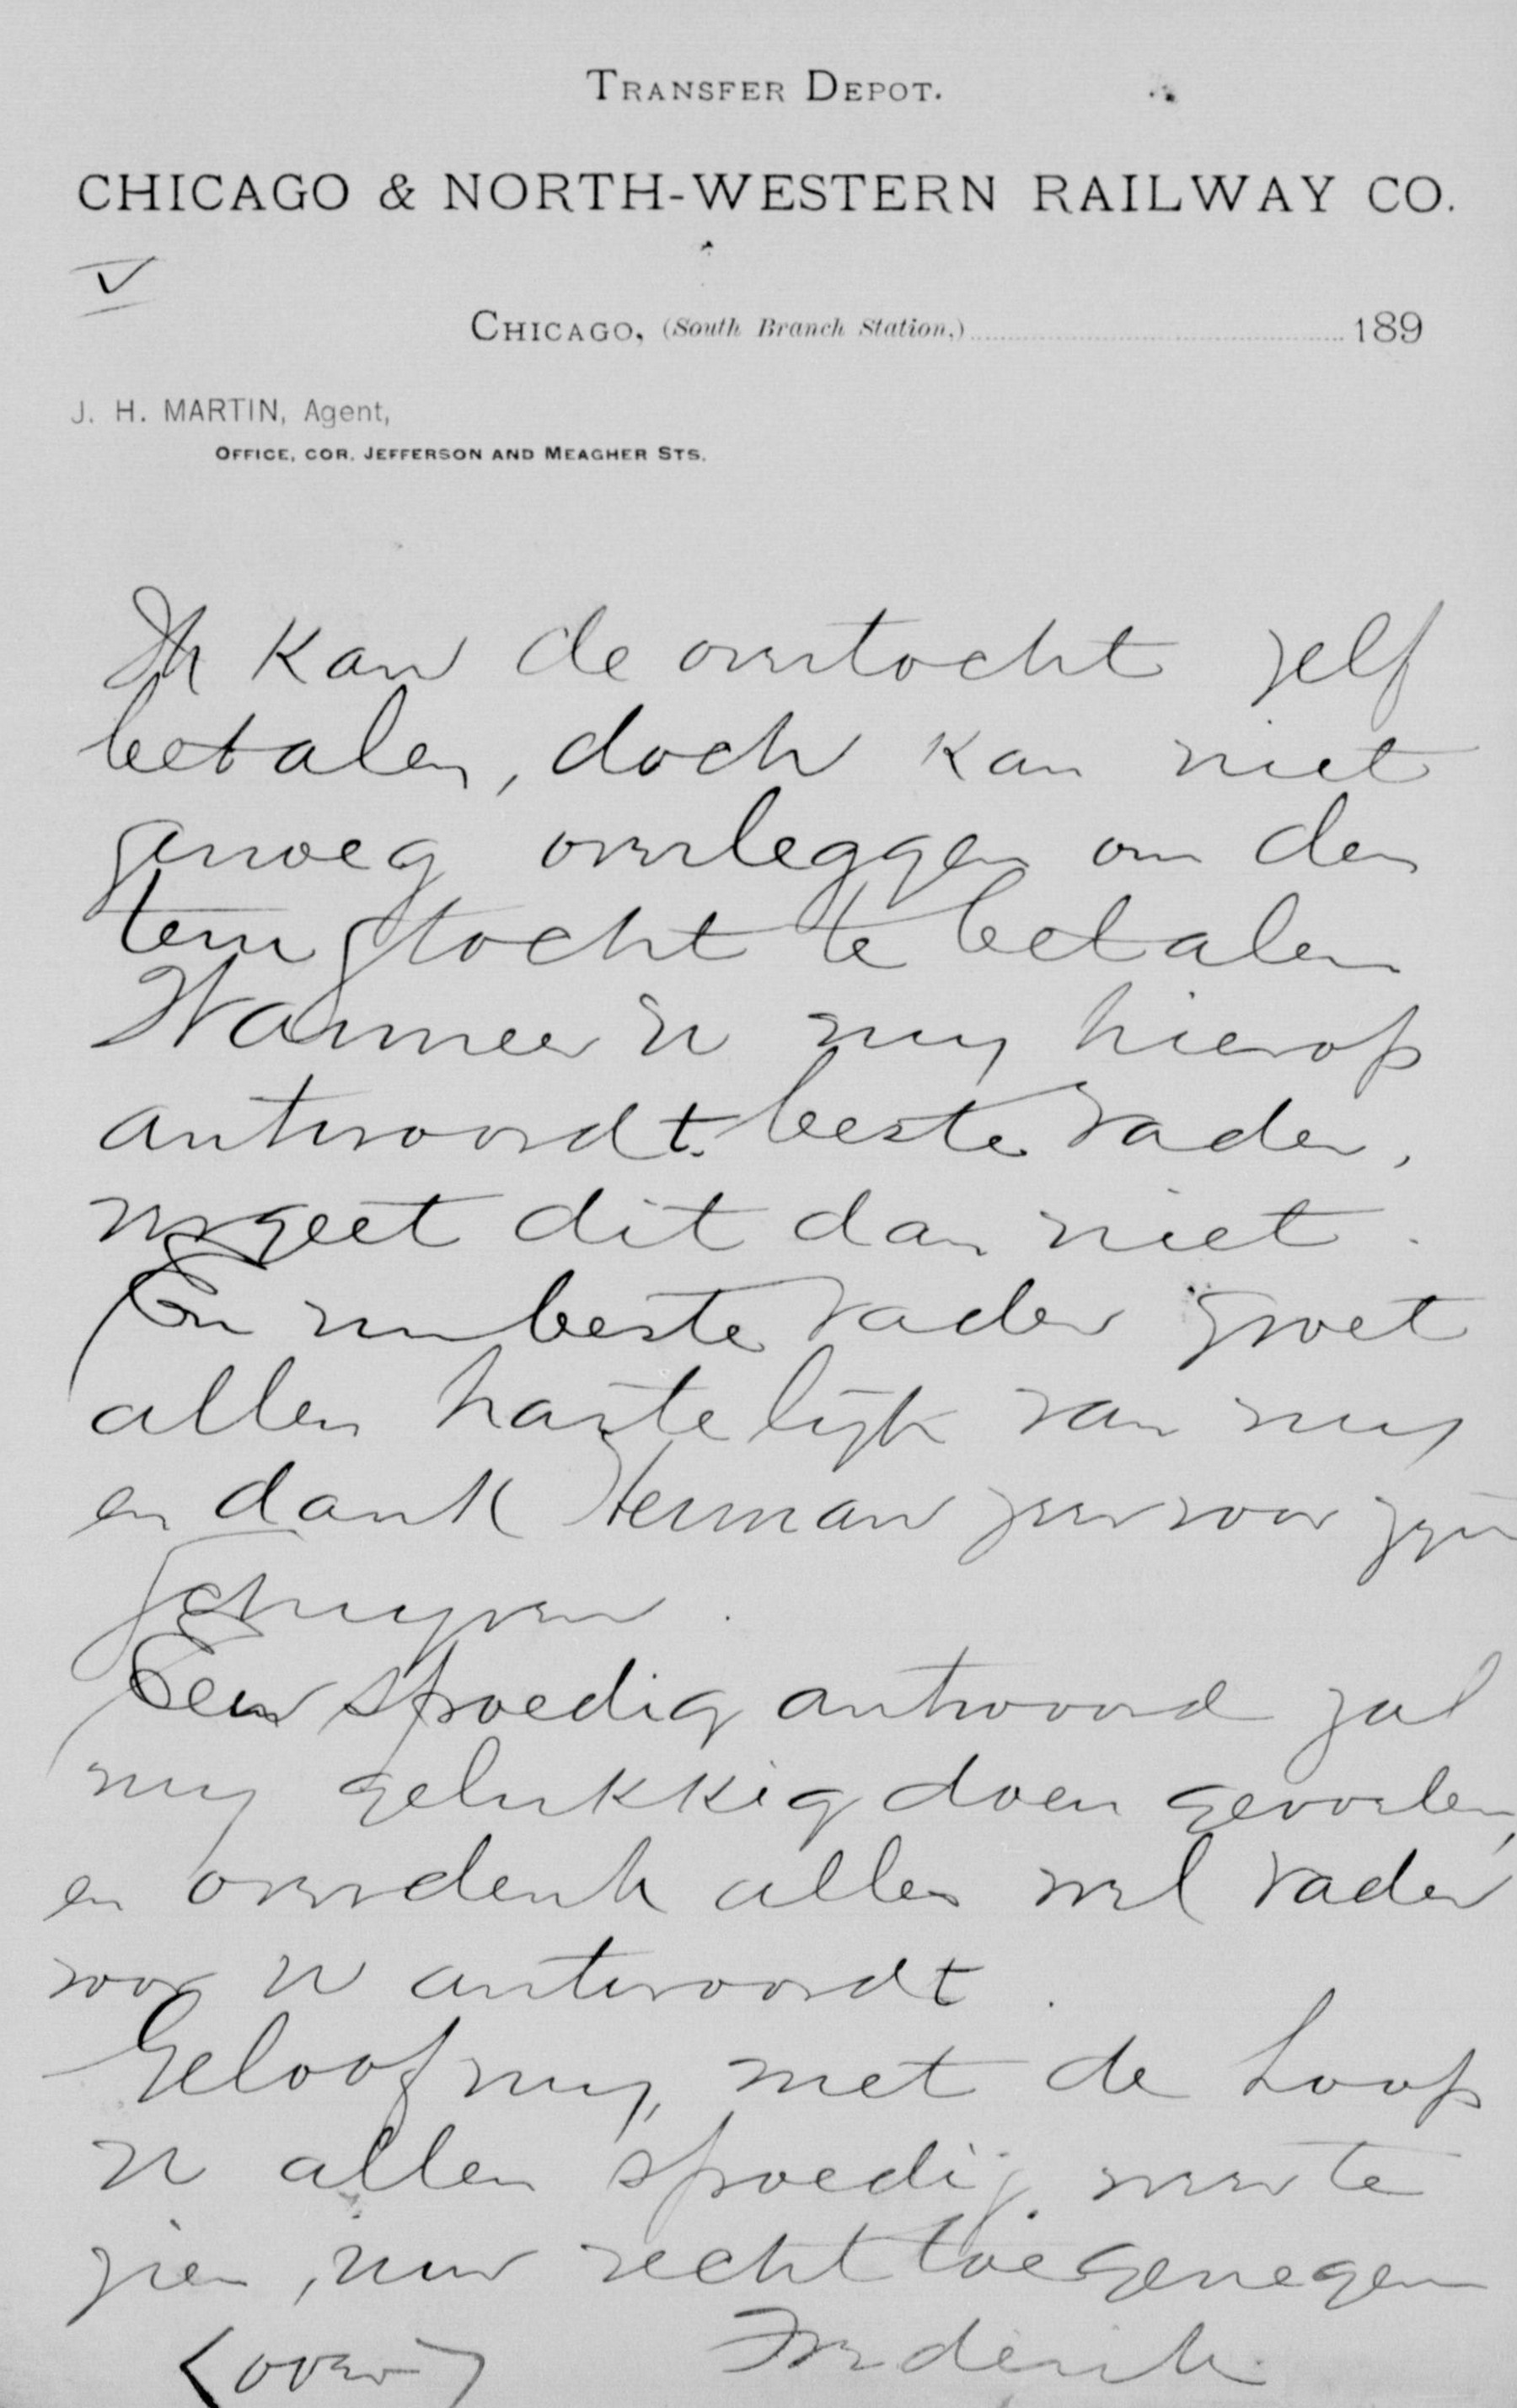 TRANSFER DEPOT.
CHICAGO & NORTH-WESTERN RAILWAY CO.
V
CHICAGO, (South Branch Station,) 189
J. H. MARTIN, Agent,
OFFICE, COR. JEFFERSON AND MEAGHER STS.
Ik kan de overtocht zelf
betalen, doch kan niet
genoeg overleggen om den
terugtocht te betalen
Wanneer U my hierop
antwoordt beste Vader,
vergeet dit dan niet.
En nu beste Vader groet
allen hartelijk van my
en dank Herman zeer voor zyn
schryven.
Een spoedig antwoord zal
my gelukkig doen gevoelen,
en overdenk alles wel Vader
voor U antwoordt.
Geloof my, met de hoop
U allen spoedig weer te
zien, uw recht toegenegen
(over) Frederik